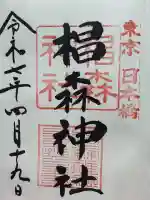 東京 日本橋
椙森神社
椙森
神社
令和七年四月十九日